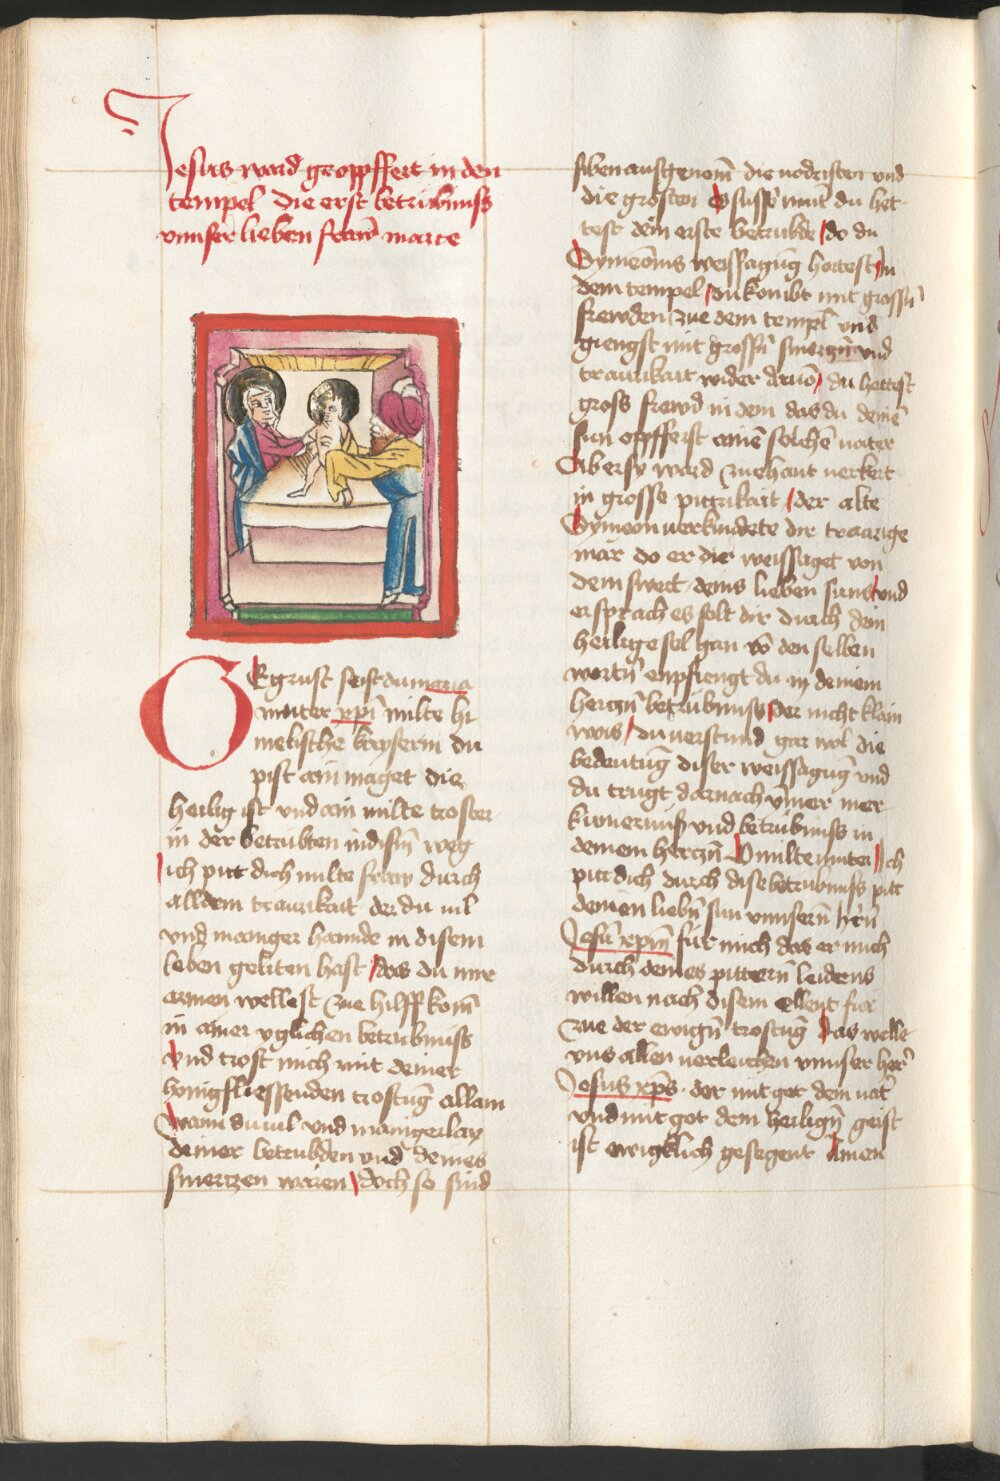 Jesus ward geopffert in den
tempel die erst betrubnuss
vnnser lieben fraw marie
GEgrust seistu maria
muter xpi milte hi
melische keyserin du
pist ain maget die
heilig ist vnd ain milte troster
in der betrubten in disem weg
ich pitt dich milte fraw durch
all dein traurikait der du uil
vnd maniger hannde in disem
leben geliten hast das du mir
armen wellest zue hilff kom̄
in ainer yglichen betrubnuss
vnd trost mich mit deiner
honigfliessenden trostūg allain
wann du uil vnd manigerlay
deiner betrubden vnd deines
smerczen waren doch so sind
siben aussgenom̄ die nodristen vnd
die grosten O susse mutt̄ du het
test dein erste betrubde do du
Symeonis weissagūg hortest in
dem tempel du kombt mit grossn̄
frewden zue dem templ vnd
giengst mit grossn̄ smerczn̄ vnd
traurikait wider daruō du hettest
gross frewd in dem das du deinē
sun opfferst ainē solchē uater
Aber sy ward zuehant verkert
in grosse pittrikait der alte
Symeon verkundete dir traurige
mär do er dir weissaget von
dem swert deins lieben suns vnd
er sprach es solt dir durch dein
heilige sel gan vō den selben
wortn̄ enpfiengt du in deinem
herczn̄ betrubnuss der nicht klain
was du uerstund gar wol die
bedeutūg diser weissagūg vnd
du trugt darnach ymer mer
kumernuss vnd betrubnuss in
deinem herczn̄ O milte muter Ich
pitt dich durch dise betrubnuss pitt
deinen liebn̄ sun vnnsern̄ hr̄n̄
Jesū xpm̄ fur mich das er mich
durch deines pittern̄ leidens
willen nach disem ellent fur
zue der ewign̄ trostūg das welle
vns allen uerleichen vnnser her̄
Jesus xps̄ der mit got dem uat̄
vnd mit got dem heilign̄ geist
ist ewigklich gesegent Amen